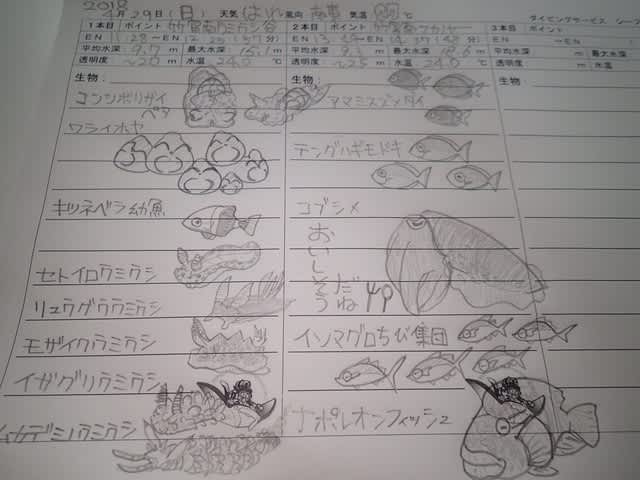 2018
4月29日(日) 天気 はれ 風向 南東 気温
ダイビングサービス
1本目 ポイント 竹富南ウミウシ谷
2本目 ポイント
3本目 ポイント
EN 11:28 ~EN 12:
EN 13: ~EN 14:48
EN ~EN
平均水深 9.7 m 最大水深 15.1 m
平均水深 9. m 最大水深 18.6 m
平均水深 m 最大水深
透明度 ~20 m 水温 24.0 ℃
透明度 ~25 m 水温 24.0 ℃
透明度 m 水温
生物:
コンシボリガイ
ペア
ワライボヤ
キツネベラ幼魚
セトイロウミウシ
リュウグウウミウシ
モザイクウミウシ
イガグリウミウシ
ムカデミノウミウシ
生物:
アマミスズメダイ
テングハギモドキ
コブシメ
おいしそう
だね
イソマグロちび集団
ナポレオンフィッシュ
生物: